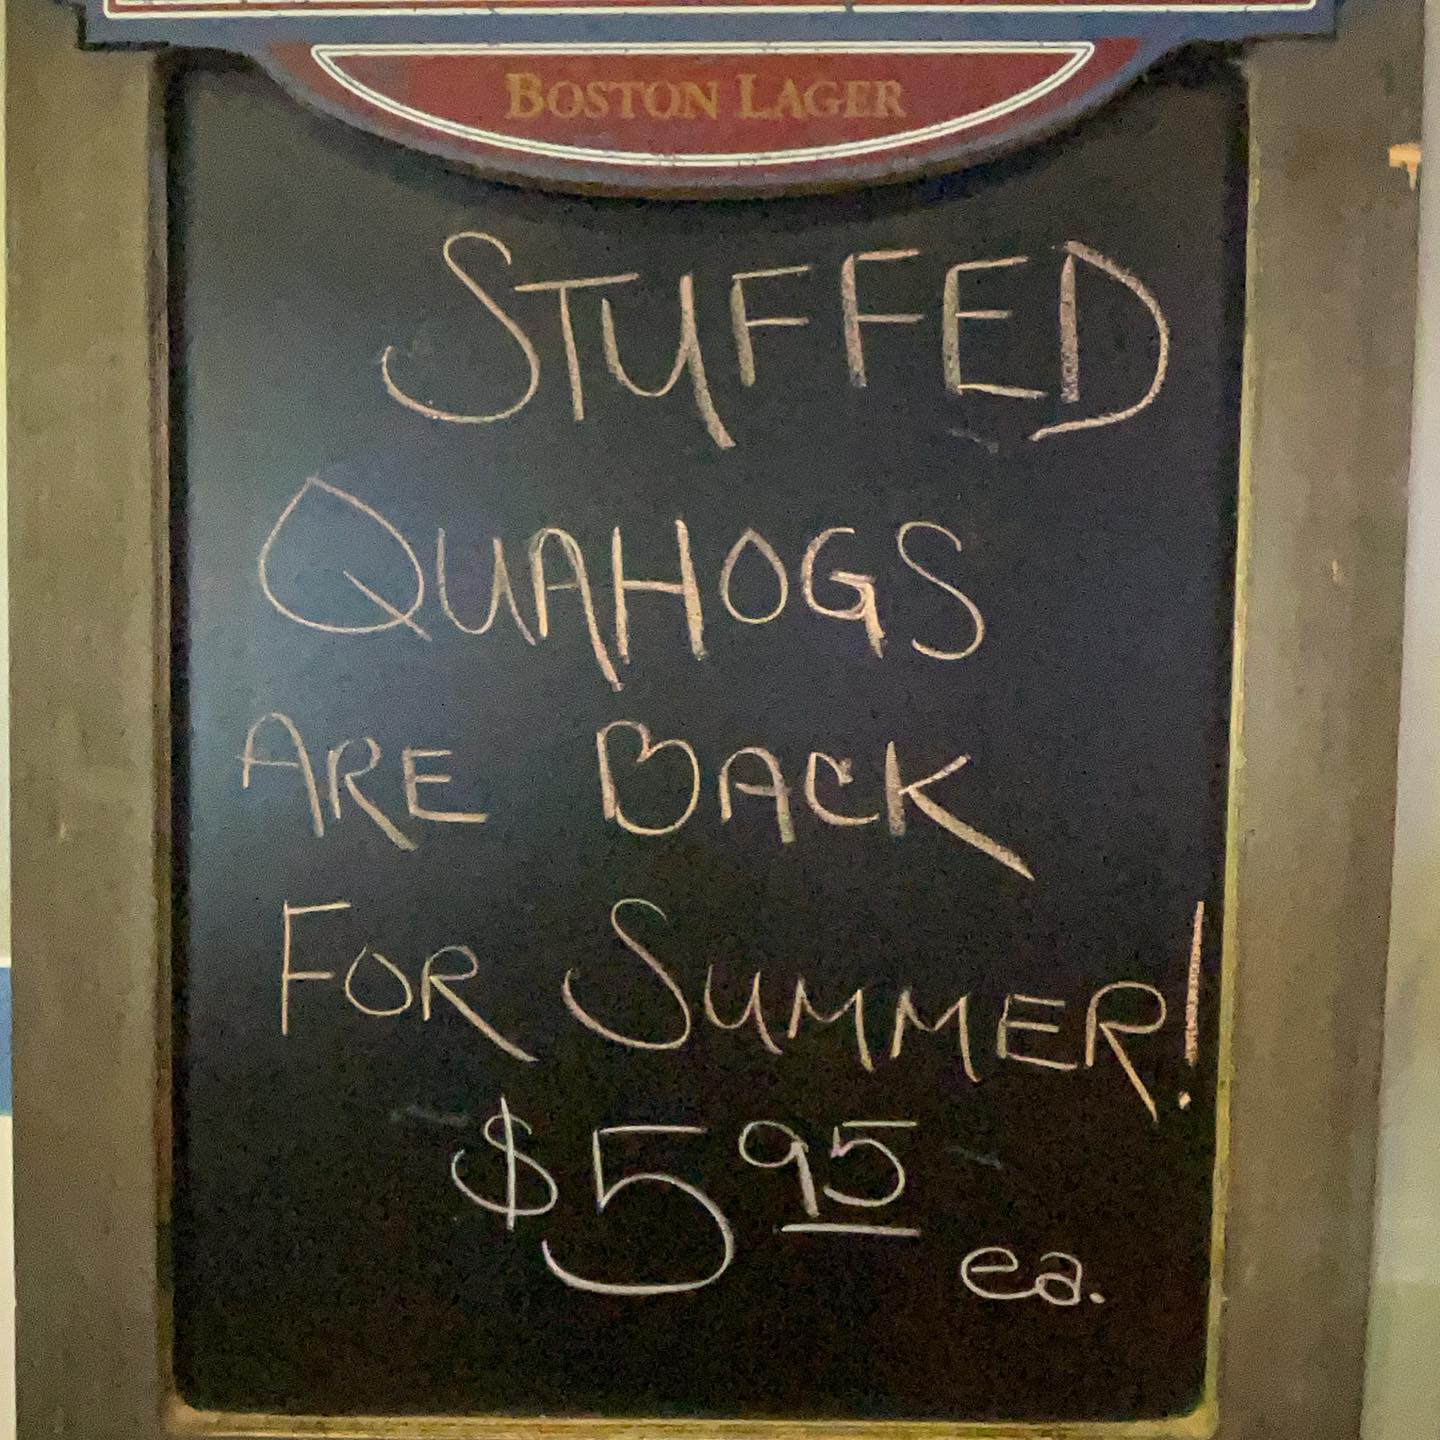 BOSTON LAGER
STUFFED
QUAHOGS
ARE BACK
FOR SUMMER!
$5 95 ea.